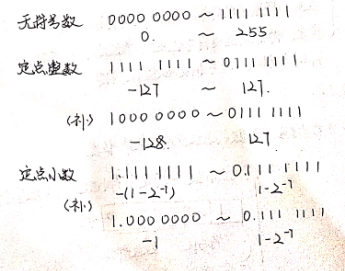 无符号数 0000 0000 ~ 1111 1111
0. ~ 255
定点整数 1111 1111 ~ 0111 1111
-127 ~ 127.
(补) 1000 0000 ~ 0111 1111
-128. 127
定点小数 1.111 1111 ~ 0.111 1111
-(1-2⁻⁷) 1-2⁻⁷
(补) 1.000 0000 ~ 0.111 1111
-1 1-2⁻⁷